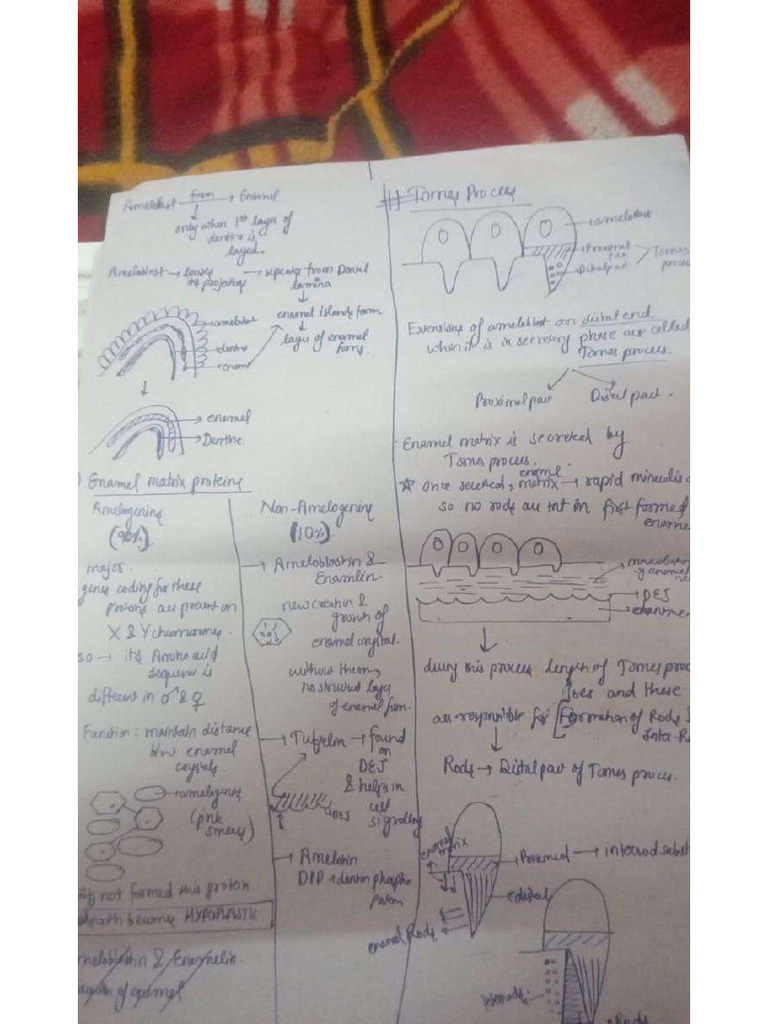 Ameloblast form → Enamel
only when 1st layer of
dentine is
layed.
Ameloblast → loses → separate from Dental
its projections lamina
enamel islands form
layer of enamel
forms.
ameloblast
dentin
enamel
enamel
Dentine.
Enamel matrix proteins
Amelogenins
(90%)
major.
genes coding for these
proteins are present on
X & Y chromosomes.
so → its Amino acid
sequence is
different in ♂ & ♀
Function: maintain distance
b/w enamel
crystals.
amelogenins
(pink
smears)
If not formed this protein
tooth become HYPOPLASTIC
Ameloblastin & Enamelin.
growth of enamel
Non-Amelogenins
(10%)
→ Ameloblastin &
Enamelin.
new creation &
growth of
enamel crystal.
without them,
no structured layer
of enamel form.
→ Tufelin → found
on
DEJ
& helps in
cell
signalling
DEJ
→ Amelotin
DPP → dentin phospho
protein
# Tomes Process
ameloblast
Proximal
part
Distal part
Tomes
process
Extensions of ameloblast on distal end
when it is in secretory phase are called
Tomes process.
Proximal part Distal part.
Enamel matrix is secreted by
Tomes process.
☆ once secreted, enamel matrix → rapid mineralis
so no rods are in first formed
enamel
of enamel
DEJ
dentine
during this process length of Tomes process
↑ses and these
are responsible for [Formation of Rods &
Inter-R
Rods → Distal part of Tomes process.
enamel matrix
Proximal → interrod subst
distal
enamel Rods.
Interrods
Rods